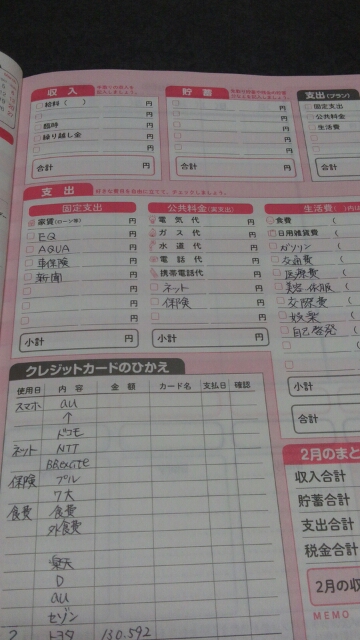 収入
給料( ) 円
円
臨時 円
繰り越し金 円
円
合計 円
貯蓄
円
円
円
円
円
合計 円
支出(プラン)
固定支出
公共料金
生活費
合計
支出 好きな費目を自由に立てて、チェックしましょう。
固定支出
家賃(ローン等) 円
EQ 円
AQUA 円
車保険 円
新聞 円
円
円
円
小計 円
公共料金(実支出)
電気代 円
ガス代 円
水道代 円
電話代 円
携帯電話代 円
ネット 円
保険 円
円
小計 円
生活費
食費 (
日用雑貨費 (
ガソリン (
交通費 (
医療費 (
美容・衣服 (
交際費 (
娯楽 (
自己啓発 (
小計
合計
クレジットカードのひかえ
使用日 内容 金額 カード名 支払日 確認
スマホ au
↑
ドコモ
ネット NTT
BBexcite
保険 プル
食費 食費
外食費
楽天
D
au
セゾン
2 トヨタ 130.592
2月のまと
収入合計
貯蓄合計
支出合計
税金合計
2月の収
MEMO